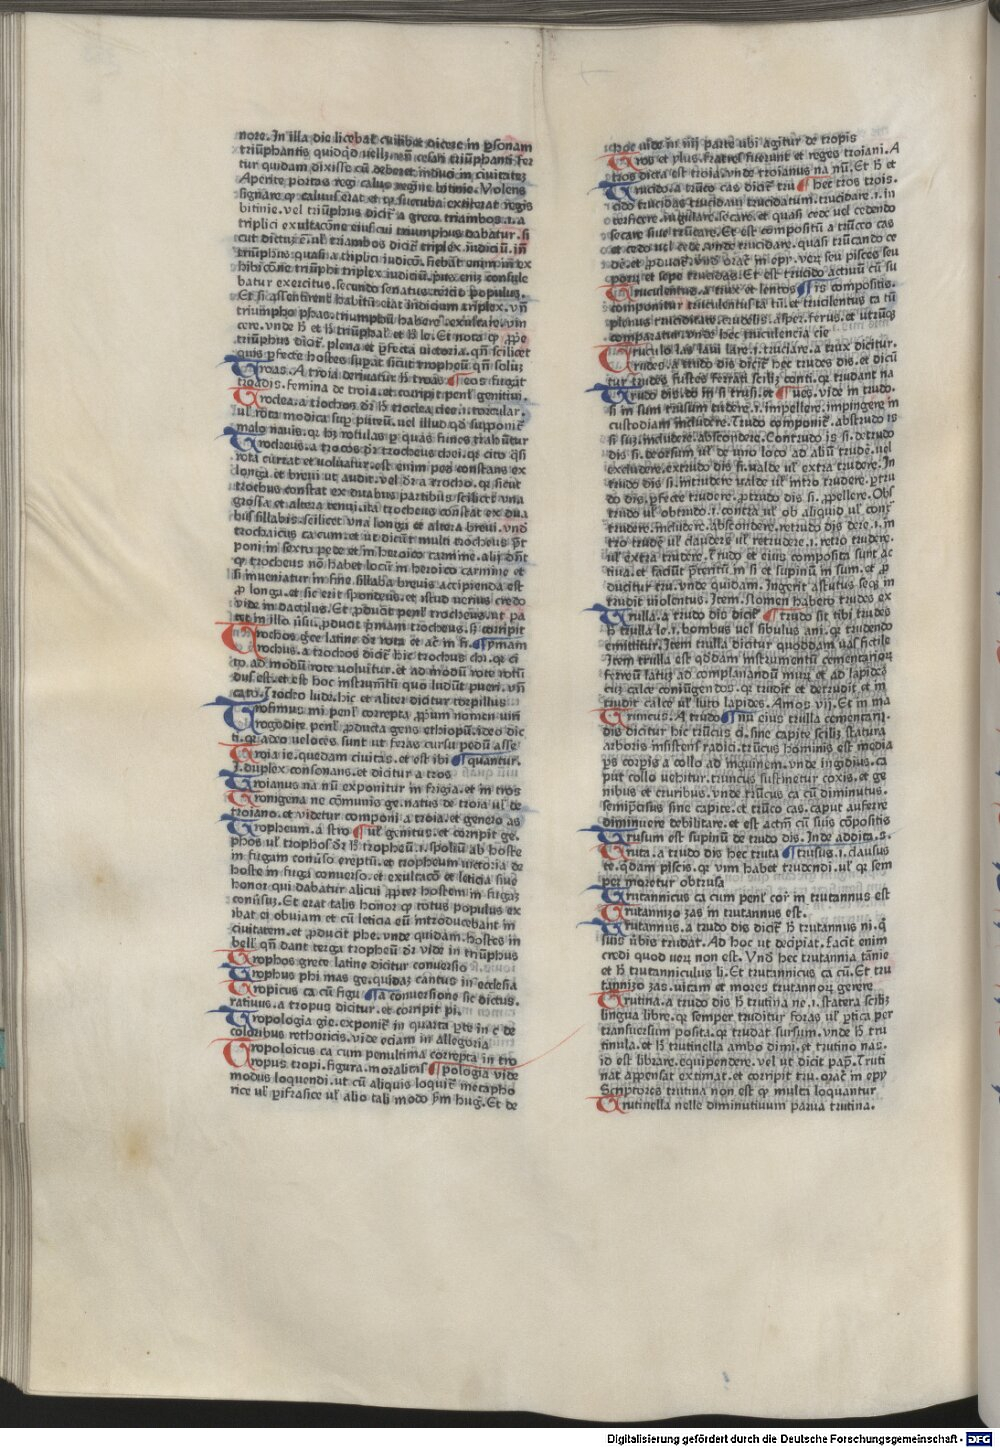 nore. In illa die licebat cuilibet dicere in ꝑsonam
triūphantis quidqͥd vellꝫ. eñ cesari triūphanti fer
tur quidam dixisse cū deberet induci in ciuitateꝫ
Aperite portas regi caluo regine bitinie. Volens
signāre ꝙ caluus erat et ꝙ succuba extiterat regis
bitinie. vel triūphus dicit̃ a greco triambos .i. a
triplici exultacōne eius cui triumphus dabatur. si
cut dictuꝫ ē. ul̓ triambos dicit̃ triplex iudiciū. iñ
triūphus quasi a triplici iudico. fiebat enim in ex
hibicōne triūphi triplex iudiciū. pͥus eniꝫ consule
batur exercitus. secundo senatus. tercio populus.
Et si assentirent habitū erat iudicium triplex. vñ
triumpho phas. triumphū habere. exultare. vin
cere. vnde ħ et ħ triūphal̓ et ħ le. Et nota ꝙ ꝓpͥe
triūphus dicit̃ plena et ꝑfecta uictoria. qñ scilicet
quis ꝑfecte hostes suꝑat sicut tropheū qñ soluꝫ
Troas. A troia deriuatur ħ troas ¶ eos fugat
troadis. femina de troia. et corripit penl̓ genitiui.
Troclea. a trochos dr̄ ħ troclea clee .i. torcular.
ul̓ rota modica suꝑ puteū. uel illud qd̓ supponit̃
malo nauis. qꝛ hꝫ rotulas ꝑ quas funes trahūtur
Trocheus. a trocos dr̄ trocheus chei. qꝛ cito qͣsi
rota currat et voluatur. est enim pes constans ex
longa et breui ut audit. vel dr̄ a trocho. qꝛ sicut
trochus constat ex duabus partibus scilicet vna
grossa et altera tenui. ita trocheus constat ex dua
bus sillabis. scilicet vna longa et altera breui. vnd̓
trochaicus ca cum. et ut dicūt multi trocheus pͥt
poni in sexto pede et in heroico carmine. alij dn̄t
ꝙ trocheus nō habet locū in heroico carmine et
si inueniatur in fine. sillaba breuis accipienda est
ꝓ longa. et sic erit spondeus. et istud uerius credo
vide in dactilus. Et ꝓduc̄ penl̓ trocheus. ut pa
tet in illo ṽsu. ꝓducit pͥmam trocheus. si corripit
Trochos gͣce latine dr̄ rota et ac̄ in si. ¶ pͥmam
Trochus. a trochos dicit̃ hic trochus chi. qꝛ ci
to ad modū rote voluitur. et ad modū rote rotū
dus est. et est hoc instrumētū quo ludūt pueri. vñ
cato. Trocho lude. hic et aliter dicitur torpillus
Trofimus mi penl̓ correpta ꝓpͥum nomen uiri
Trogodite penl̓ ꝓducta gens ethiopū. ideo dic
ti. qꝛ adeo veloces sunt ut feras cursu pedū asse
Troia ie. quedam ciuitas. et est ibi ¶ quantur.
I. duplex consonans. et dicitur a tros
Troianus na nū exponitur in frigia. et in tros
Tronigena ne cōmunis ge. natus de troia ul̓ de
troiano. et videtur componi a troia. et genero as
Tropheum. a stro ¶ ul̓ genitus. et corripit ge.
phos ul̓ trophos dr̄ ħ tropheū .i. spoliū ab hoste
in fugam conuerso ereptū. et tropheum uictoria de
hoste in fuga conuerso. et exultacō et leticia siue
honor qui dabatur alicui ꝓpter hostem in fugaꝫ
conūsuꝫ. Et erat talis honor ꝙ totus populus ex
ibat ei obuiam et cū leticia eū introducebant in
ciuitatem. et ꝓducit phe. vnde quidam. Hostes in
bell̓ qñ dant terga tropheū dr̄ vide in triūphus
Trophos grece latine dicitur conuersio
Trophus phi mas ge. quidaꝫ cantus in ecclesia
Tropicus ca cū figu ¶ a conuersione sic dictus.
ratiuus. a tropus dicitur. et corripit pi.
Tropologia gie. exponit̃ in quarta ꝑte in c̄ de
coloribus rethoricis. vide eciam in allegoria
Tropoloicus ca cum penultima correpta in tro
Tropus tropi. figura. moralitas ¶ pologia vide
modus loquendi. ut cū aliquis loquit̃ metapho
rice ul̓ ꝑifrasice ul̓ alio tali modo ẜm hug̓. Et de
hoc uide in iiij parte ubi agitur de tropis
Tros et plus. fratres fuerunt et reges troiani. A
tros dicta est troia. vnde troianus na nū. Et ħ et
Trucido. a trūco cas dicit̃ tru ¶ hec tros trois.
cido trucidas trucidaui trucidatum. trucidare. i. in
terficere. iugulare. secare. et quasi cede uel cedendo
secare siue trūcare. Et est compositū a trūcco cas
et cedo uel cede. vnde trucidare. quasi trūcando ce
dē. et ꝓducit̃. vnd̓ orac̄ in epy. veꝝ seu pisces seu
porꝝ et sepe trucidas. Et est trucido actiuū cū su
Truculentus. a trux et lentos ¶ is compositis.
componitur truculentus ta tū. et trucilentus ta tū
plenus truciditate. crudelis. asper. ferus. et utrūqꝫ
comparatur. vnde hec truculencia cie
Truculo las laui lare .i. truciare. a trux dicitur.
Trudes. a trudo dis dicit̃ hec trudes dis. et dicū
tur trudes fustes ferrati sciliꝫ conti. qꝛ trudant na
Trudo dis. do in si trusi. et ¶ ues. vide in trudo.
si in sum trusum trudere .i. impellere. impingere in
custodiam includere. Trudo componit̃. abstrudo is
si suꝫ. includere. abscondere. Contrudo is si. detrudo
dis si. deorsum ul̓ de uno loco ad aliū trudē. uel
excludere. extrudo dis si. ualde ul̓ extra trudere. In
trudo dis si. intrudere ualde ul̓ intro trudere. ꝑtru
do dis. ꝑfecte trudere. ꝓtrudo dis si. ꝓpellere. Obs
trudo ul̓ obtrudo .i. contra ul̓ ob aliquid ul̓ cont̓
trudere. includere. abscondere. retrudo dis dere. i. in
tro trudē ul̓ claudere ul̓ retrudere .i. retro trudere.
ul̓ extra trudere. Trudo et eius composita sunt ac
tiua. et faciūt pͥteritū in si et supinū in sum. et ꝓ
ducitur tru. vnde quidam. Ingerit astutus seqꝫ in
trudit uiolentus. Item. Nomen habeto trudes ex
Trulla. a trudo dis dicit̃ ¶ trudo sit tibi trudes
ħ trulla le .i. bombus uel sibulus ani. qꝛ trudendo
emittitur. Item trulla dicitur quoddam uas fictile
Item trulla est qd̓dam instrumentū cementarioꝝ
ferreū latuꝫ ad complanandū muꝝ et ad lapides
cuꝫ calce coniūgendos. qꝛ trudit et detrudit et in
trudit calcē ul̓ lutū lapides. Amos vij. Et in ma
Truncus. A trudo ¶ nu eius trulla cementarij.
dis dicitur hic trūcus ci. sine capite sciliꝫ statura
arboris insistens radici. trūcus hominis est media
ꝑs corpis a collo ad inguinem. vnde ingidius. ca
put collo uehitur. truncus sustinetur coxis. et ge
nibus et cruribus. vnde trūcus ca cū diminutus.
semiꝑcisus sine capite. et trūco cas. caput auferre
diminuere debilitare. et est actiū cū suis cōpositis
Trusum est supinū de trudo dis. Inde addita .s.
Truta. a trudo dis hec truta ¶ trusus .i. clausus
te. qͥdam piscis. qꝛ vim habet trudendi. ul̓ qꝛ sem
per moretur obtrusa
Trutannicus ca cum penl̓ cor̄ in trutannus est
Trutannizo zas in trutannus est.
Trutannus. a trudo dis dicit̃ ħ trutannus ni. qͥ
suis ūbis trudat. Ad hoc ut decipiat. facit enim
credi quod ueꝝ non est. Vnd̓ hec trutannia tānie
et ħ trutanniculus li. Et trutannicus ca cū. Et tru
tannizo zas. uitam et mores trutannoꝝ gerere
Trutina. a trudo dis ħ trutina ne .i. statera sciliꝫ
lingua libre. qꝛ semper truditur foras ul̓ ꝑtica per
transuersum posita. qꝛ trudat sursum. vnde ħ tru
tinula. et ħ trutinella ambo dimi. et trutino nas.
id est librare. equipendere. vel ut dicit pap̄. Truti
nat appensat extimat. et corripit tru. orac̄ in epy
Scriptores trutina non est qꝛ multi loquantur
Trutinella nelle diminutiuum parua trutina.
Digitalisierung gefördert durch die Deutsche Forschungsgemeinschaft - DFG